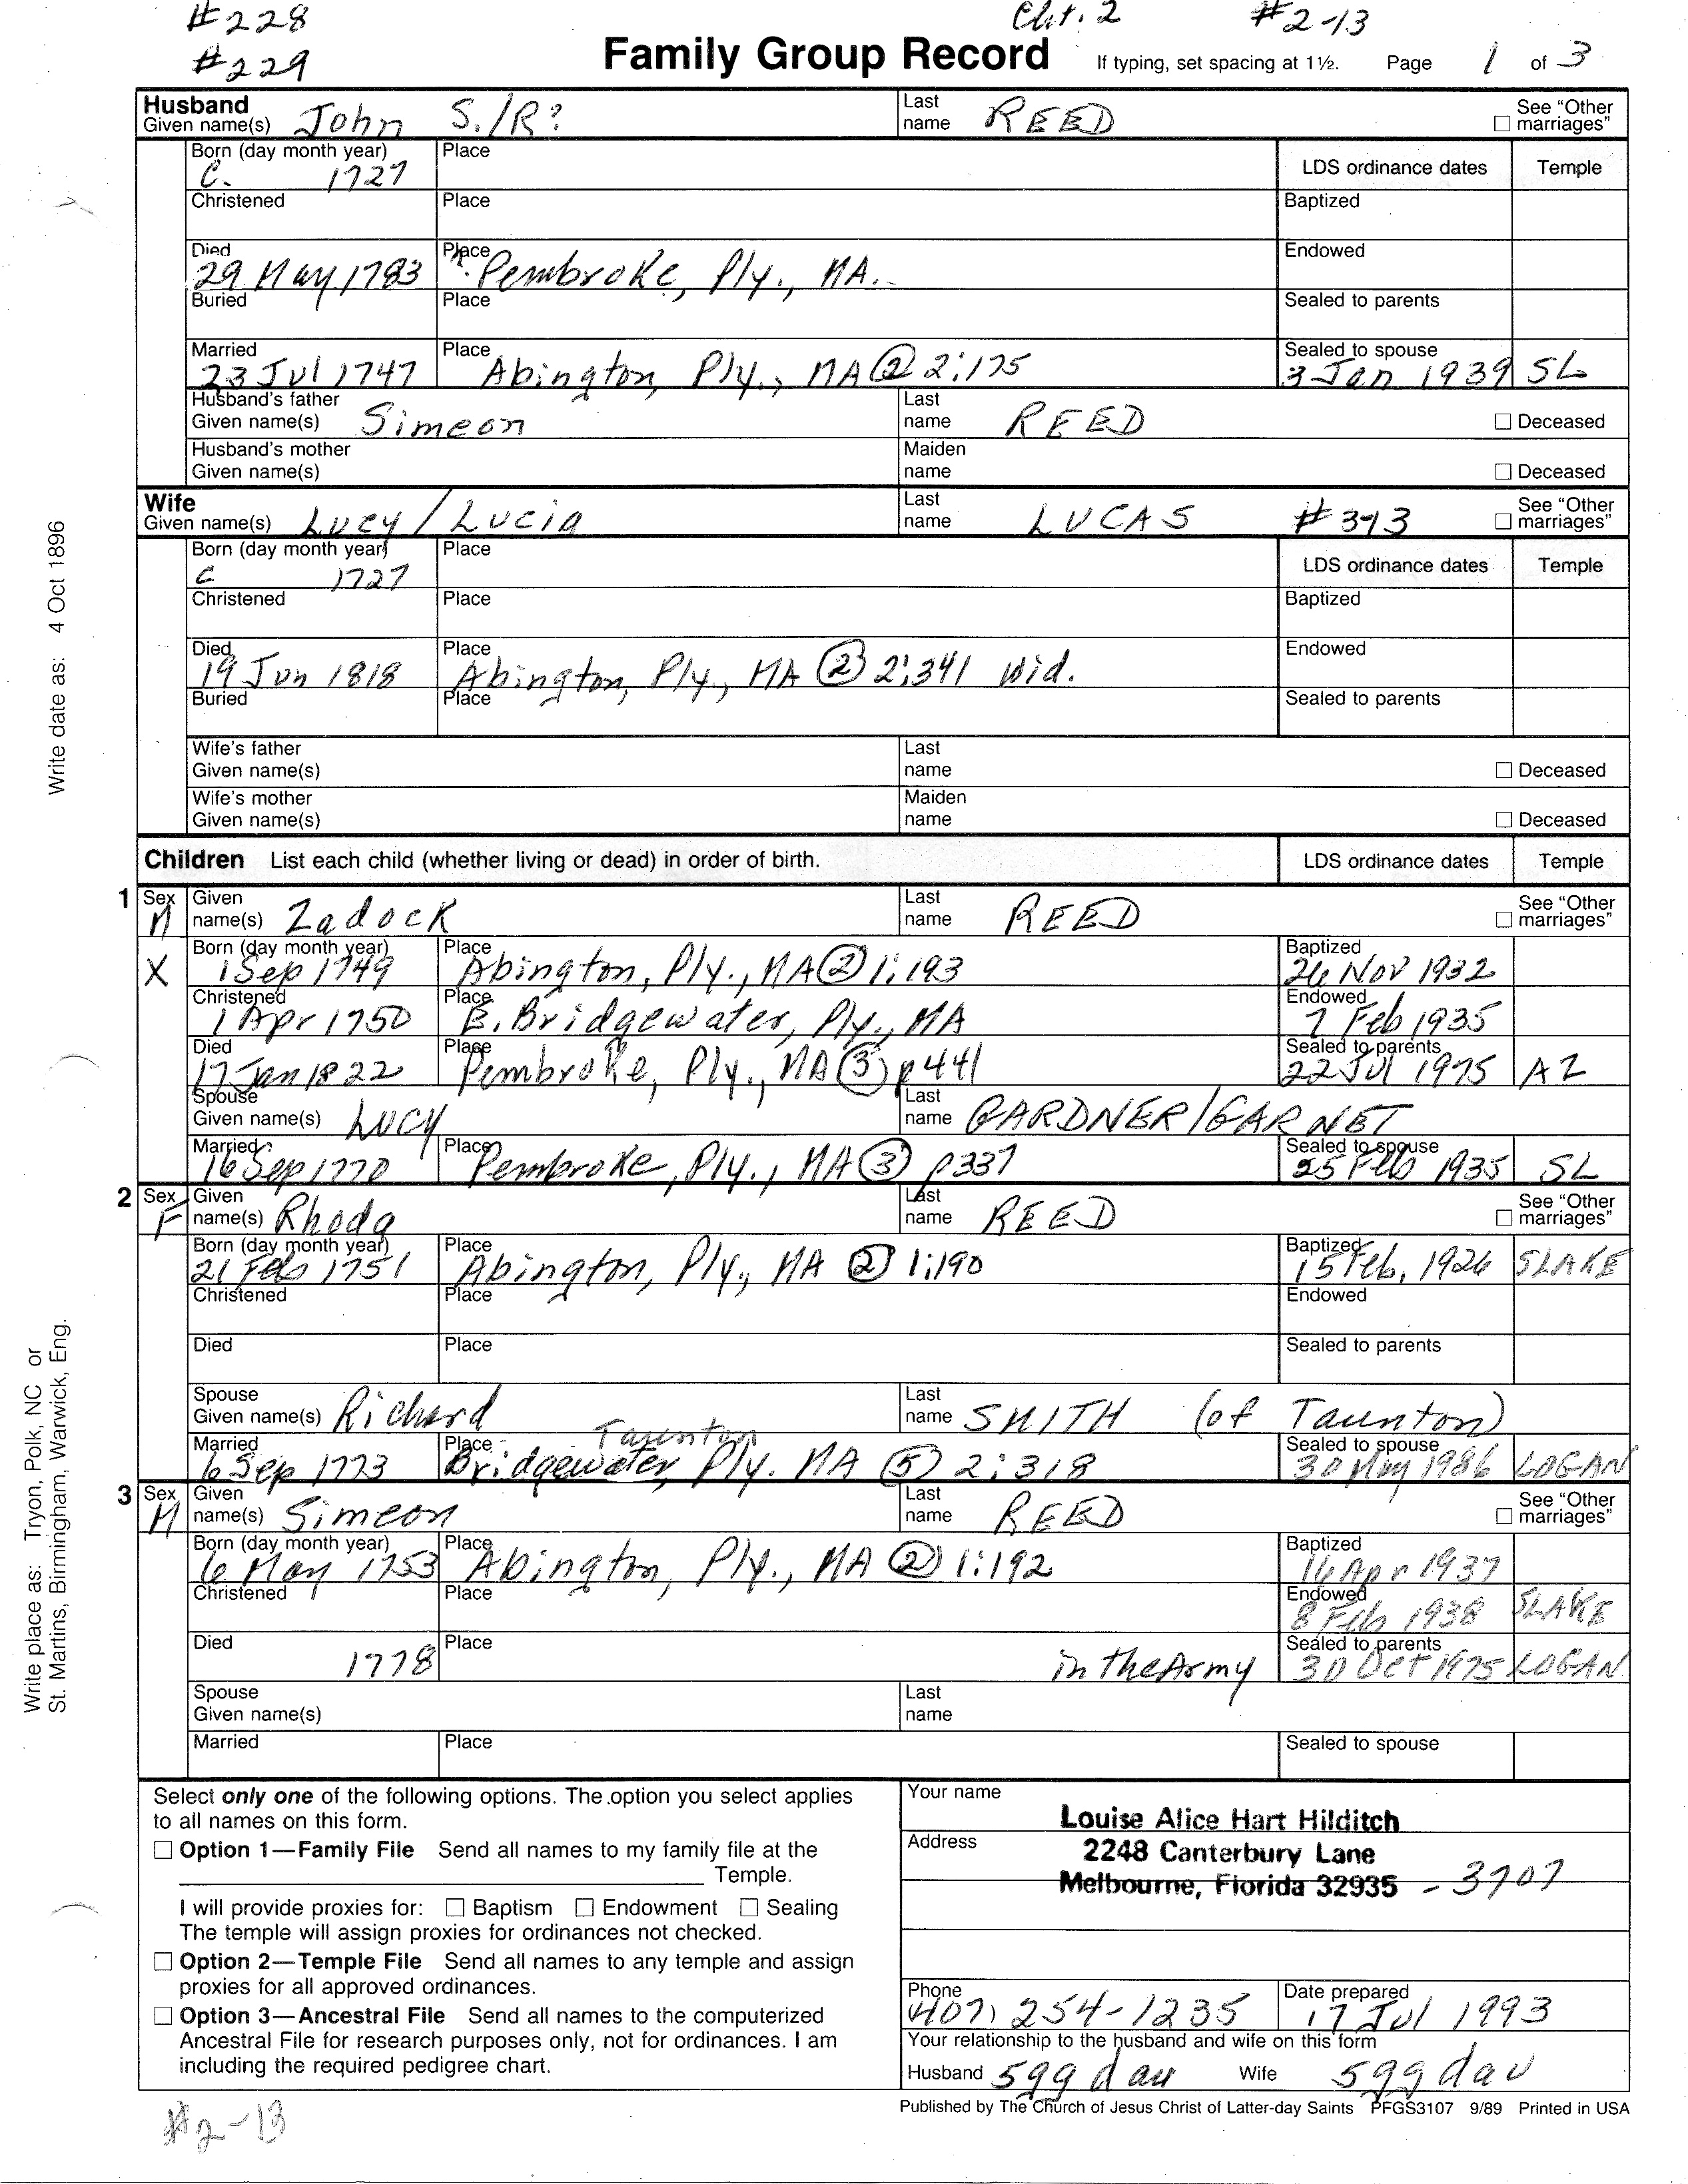 #228 Cht. 2 #2-13
#229 Family Group Record If typing, set spacing at 1½. Page 1 of 3
Husband Given name(s) John S./R? Last name REED See "Other marriages"
Born (day month year) C. 1727 Place LDS ordinance dates Temple
Christened Place Baptized
Died 29 May 1783 Place Pembroke, Ply., MA. Endowed
Buried Place Sealed to parents
Married 23 Jul 1747 Place Abington, Ply., MA ② 2:175 Sealed to spouse 3 Jan 1939 SL
Husband's father Given name(s) Simeon Last name REED Deceased
Husband's mother Given name(s) Maiden name Deceased
Wife Given name(s) Lucy / Lucia Last name LUCAS #393 See "Other marriages"
Born (day month year) C 1727 Place LDS ordinance dates Temple
Christened Place Baptized
Died 19 Jun 1818 Place Abington, Ply., MA ② 2:341 Wid. Endowed
Buried Place Sealed to parents
Wife's father Given name(s) Last name Deceased
Wife's mother Given name(s) Maiden name Deceased
Children List each child (whether living or dead) in order of birth. LDS ordinance dates Temple
1 Sex M Given name(s) Zadock Last name REED See "Other marriages"
X Born (day month year) 1 Sep 1749 Place Abington, Ply., MA ② 1:193 Baptized 26 Nov 1932
Christened 1 Apr 1750 Place E. Bridgewater, Ply., MA Endowed 7 Feb 1935
Died 17 Jan 1822 Place Pembroke, Ply., MA ③ p441 Sealed to parents 22 Jul 1975 AZ
Spouse Given name(s) LUCY Last name GARDNER/GARNET
Married 16 Sep 1770 Place Pembroke, Ply., MA ③ p337 Sealed to spouse 25 Feb 1935 SL
2 Sex F Given name(s) Rhoda Last name REED See "Other marriages"
Born (day month year) 21 Feb 1751 Place Abington, Ply., MA ② 1:190 Baptized 15 Feb, 1926 SLAKE
Christened Place Endowed
Died Place Sealed to parents
Spouse Given name(s) Richard Last name SMITH (of Taunton)
Taunton
Married 6 Sep 1773 Place Bridgewater, Ply. MA ⑤ 2:318 Sealed to spouse 30 May 1986 LOGAN
3 Sex M Given name(s) Simeon Last name REED See "Other marriages"
Born (day month year) 6 May 1753 Place Abington, Ply., MA ② 1:192 Baptized 16 Apr 1937
Christened Place Endowed 8 Feb 1938 SLAKE
Died 1778 Place in the Army Sealed to parents 30 Oct 1975 LOGAN
Spouse Given name(s) Last name
Married Place Sealed to spouse
Write date as: 4 Oct 1896
Write place as: Tryon, Polk, NC or
St. Martins, Birmingham, Warwick, Eng.
Select only one of the following options. The option you select applies
to all names on this form.
Option 1—Family File Send all names to my family file at the
Temple.
I will provide proxies for: Baptism Endowment Sealing
The temple will assign proxies for ordinances not checked.
Option 2—Temple File Send all names to any temple and assign
proxies for all approved ordinances.
Option 3—Ancestral File Send all names to the computerized
Ancestral File for research purposes only, not for ordinances. I am
including the required pedigree chart.
Your name Louise Alice Hart Hilditch
Address 2248 Canterbury Lane
Melbourne, Florida 32935 - 3707
Phone (407) 254-1235 Date prepared 17 Jul 1993
Your relationship to the husband and wife on this form
Husband 5gg dau Wife 5gg dau
Published by The Church of Jesus Christ of Latter-day Saints PFGS3107 9/89 Printed in USA
#2-13